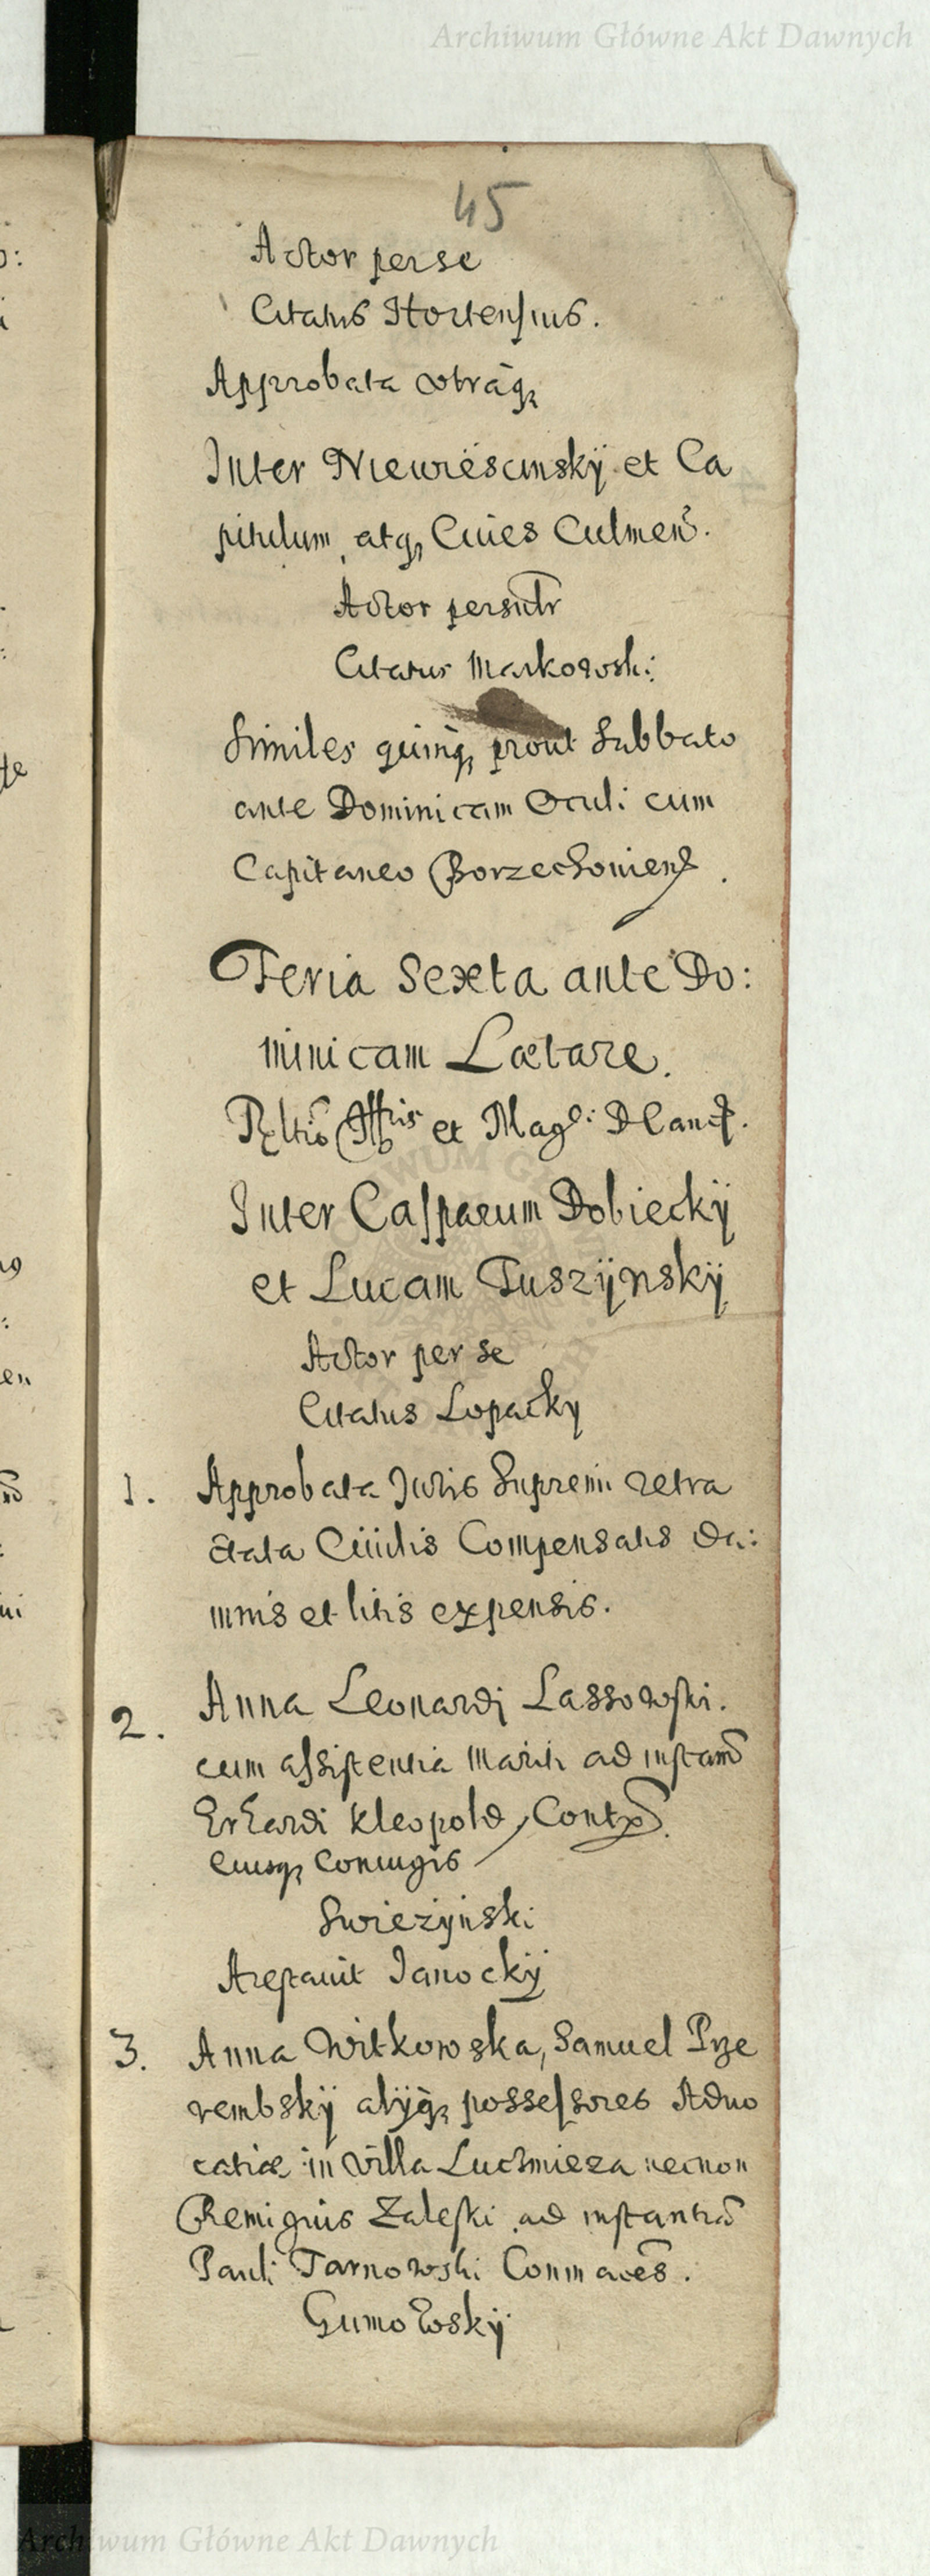 Archiwum Główne Akt Dawnych
45
Actor per se
Citatus Hortensius.
Approbata vtraq3
Inter Niewiescinskÿ et Ca
pitulum atq3 Ciues Culmen.
Actor personalr
Citatus Markowski:
Similes quinq3 prout Sabbato
ante Dominicam Oculi cum
Capitaneo Borzechowien .
Feria Sexta ante Do:
minicam Lætare.
et Mag
Inter Casparum Dobieckÿ
et Lucam Tuszÿnskÿ
Actor per se
Citatus Lopacky
1. Approbata Juris Supremi retra
ctata Ciuilis Compensatis da:
mnis et litis expensis.
2. Anna Leonardi Lassowski.
cum assistentia Mariti ad instam
Erhardi Kleopold, Contx
eiusq3 Coniugis
Swiezÿnski
Arestauit Janockÿ
3. Anna Witkowska, Samuel Prze
rembskÿ alÿq3 possessores Aduo
catiæ in villa Luchmieza necnon
Remigius Zaleski ad instantia
Pauli Tarnowski Conmaces.
Gumowskÿ
Archiwum Główne Akt Dawnych